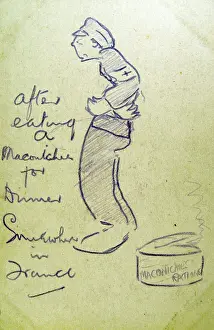 After
eating
a
Maconichie
for
Dinner
Somewhere
in
France
MACONICHIE
RATIONS